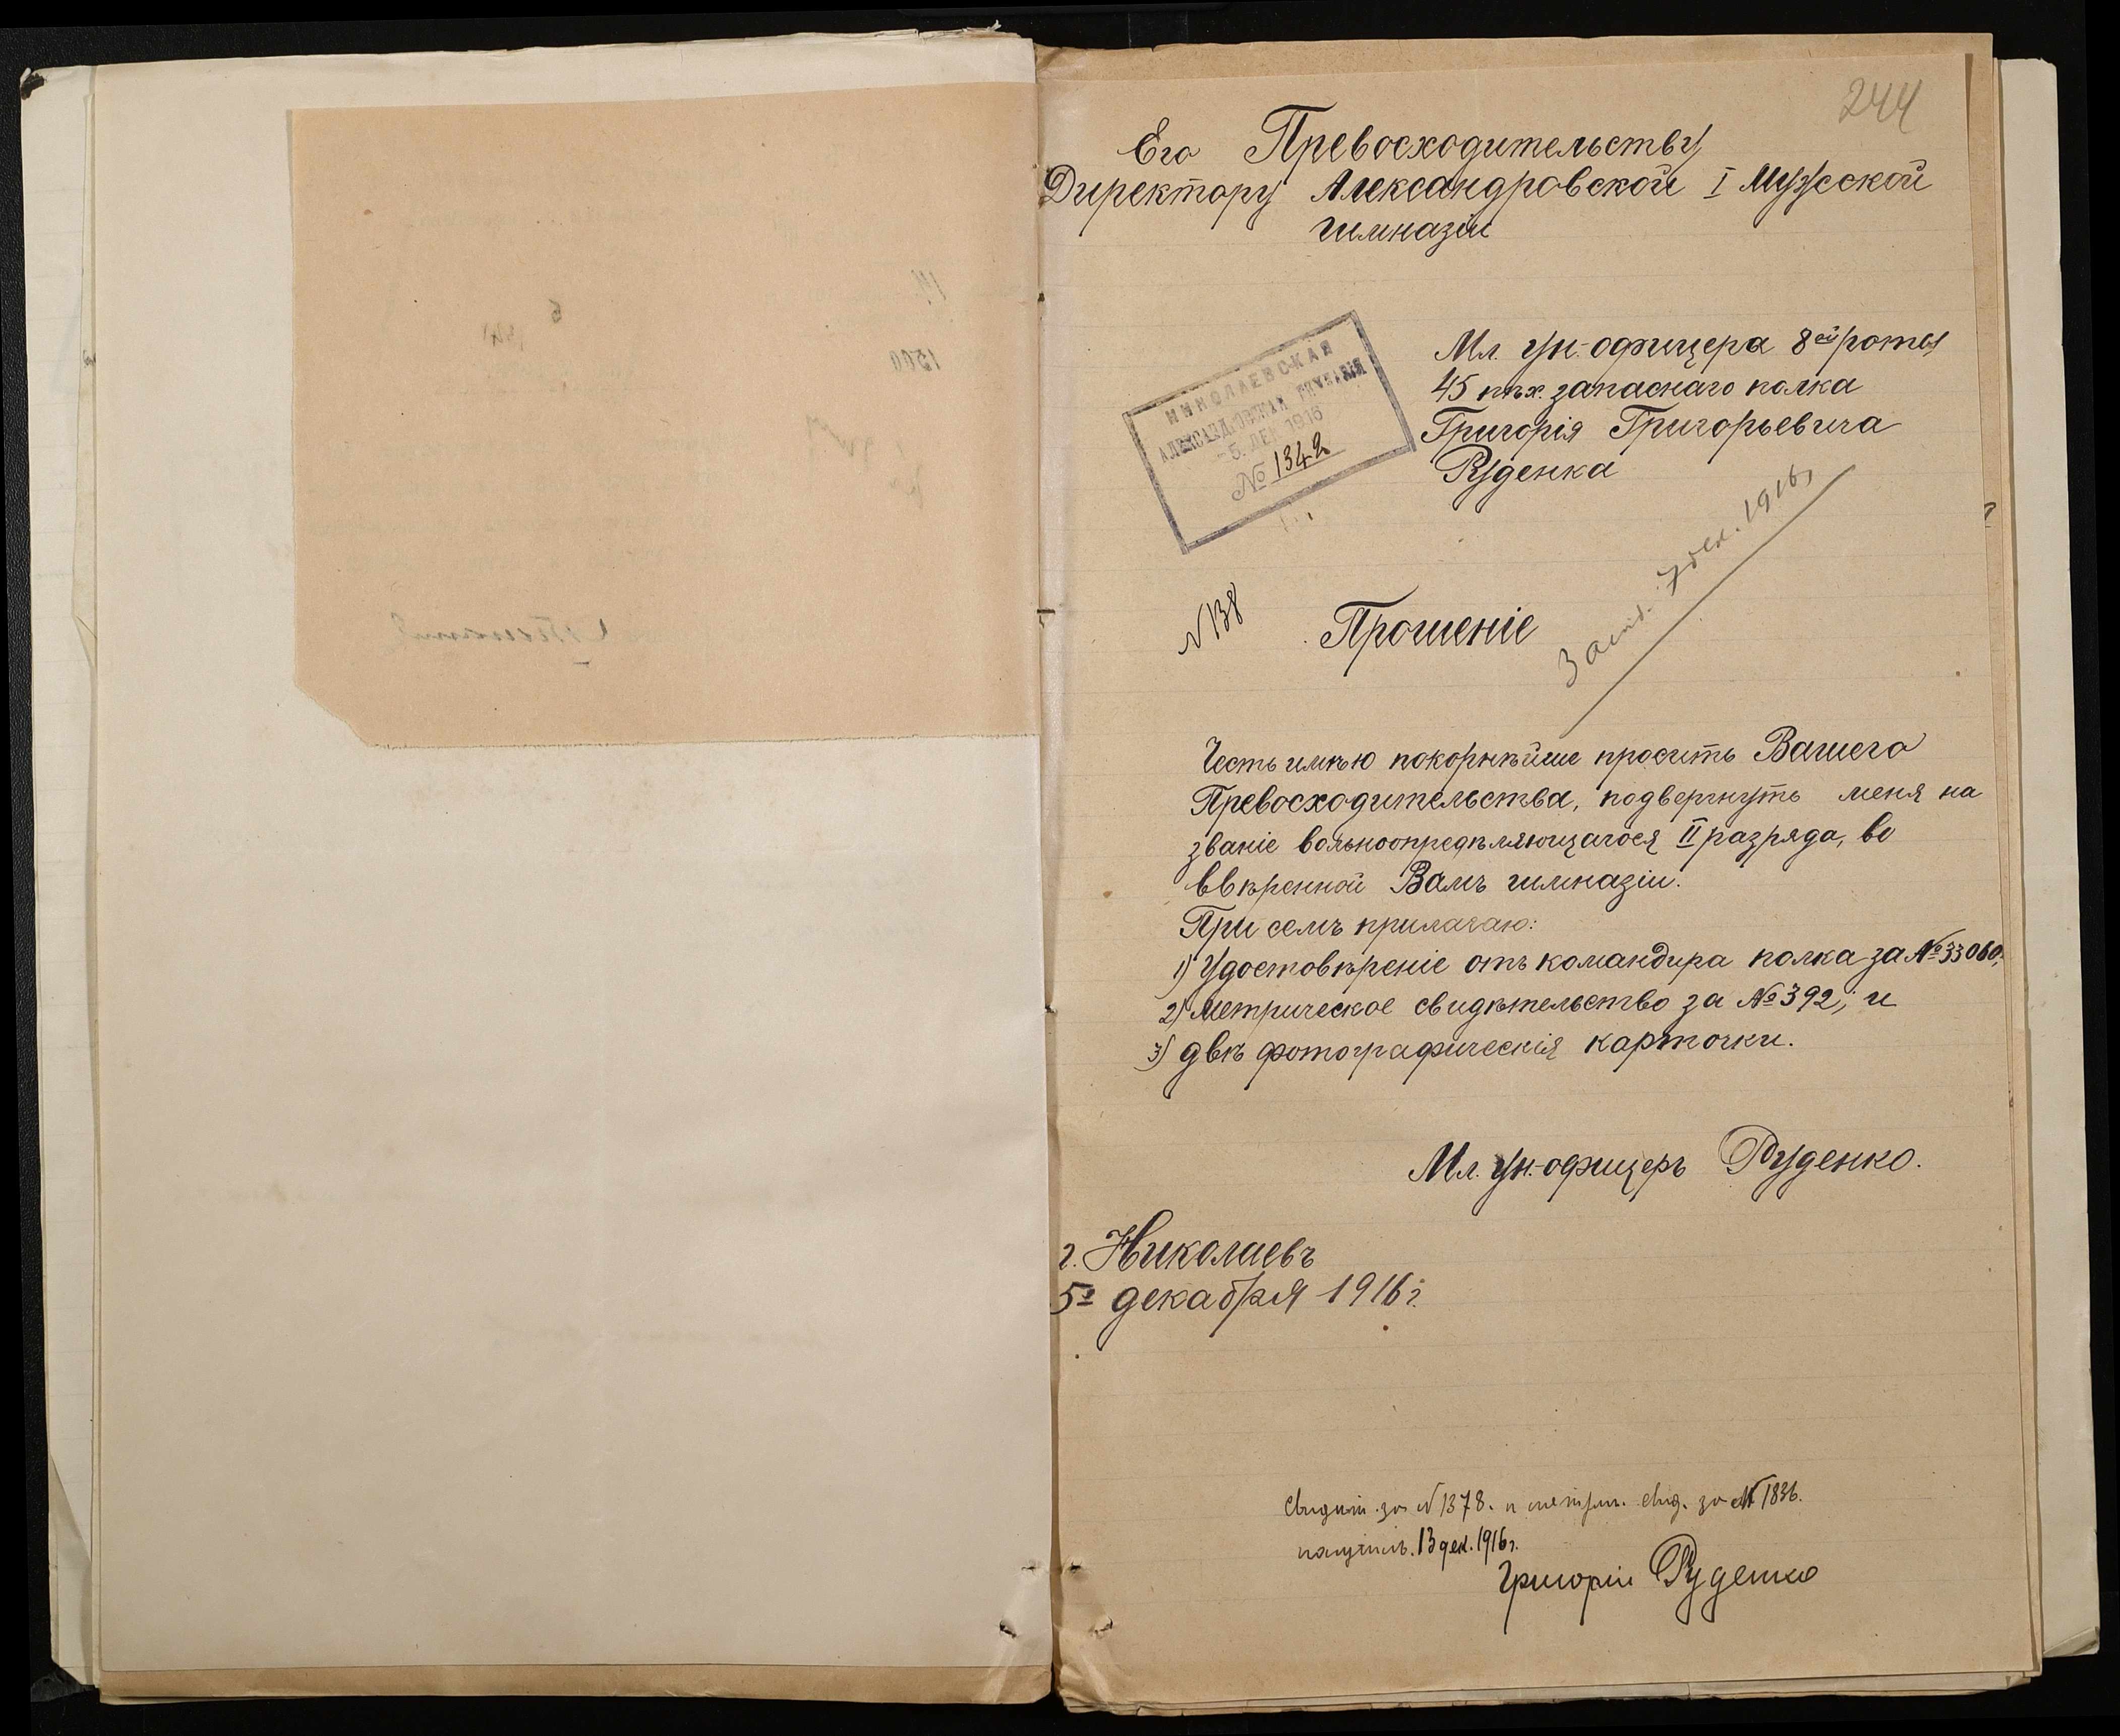 244
Его Превосходительству
Директору Александровской I Мужской
гимназіи
НИКОЛАЕВСКАЯ
АЛЕКСАНДРОВСКАЯ ГИМНАЗІЯ
5. ДЕК 1916
№ 1342
Мл. ун.-офицера 8ой роты
45 пѣх. запаснаго полка
Григорія Григорьевича
Руденка
7 дек. 1916,
N 138
Прошеніе
Честь имѣю покорнѣйше просить Вашего
Превосходительства, подвергнуть меня на
званіе вольноопредѣляющагося II разряда, во
ввѣренной Вамъ гимназіи.
При семъ прилагаю:
1) Удостовѣреніе отъ командира полка за № 33060;
2) Метрическое свидѣтельство за № 392; и
3) двѣ фотографическія карточки.
Мл. ун.-офицеръ Руденко.
г. Николаевъ
5го декабря 1916 г.
Свидѣт. за N 1378. и метрич. свид. за N 1836.
получилъ. 13 дек. 1916 г.
Григорій Руденко